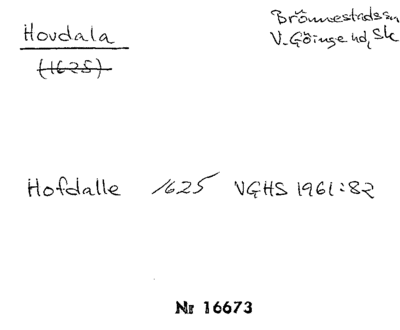 Hovdala
Brönnestadssn
V. Göinge hd, Sk
(1625)
Hofdalle 1625 VGHS 1961:82
Nr 16673